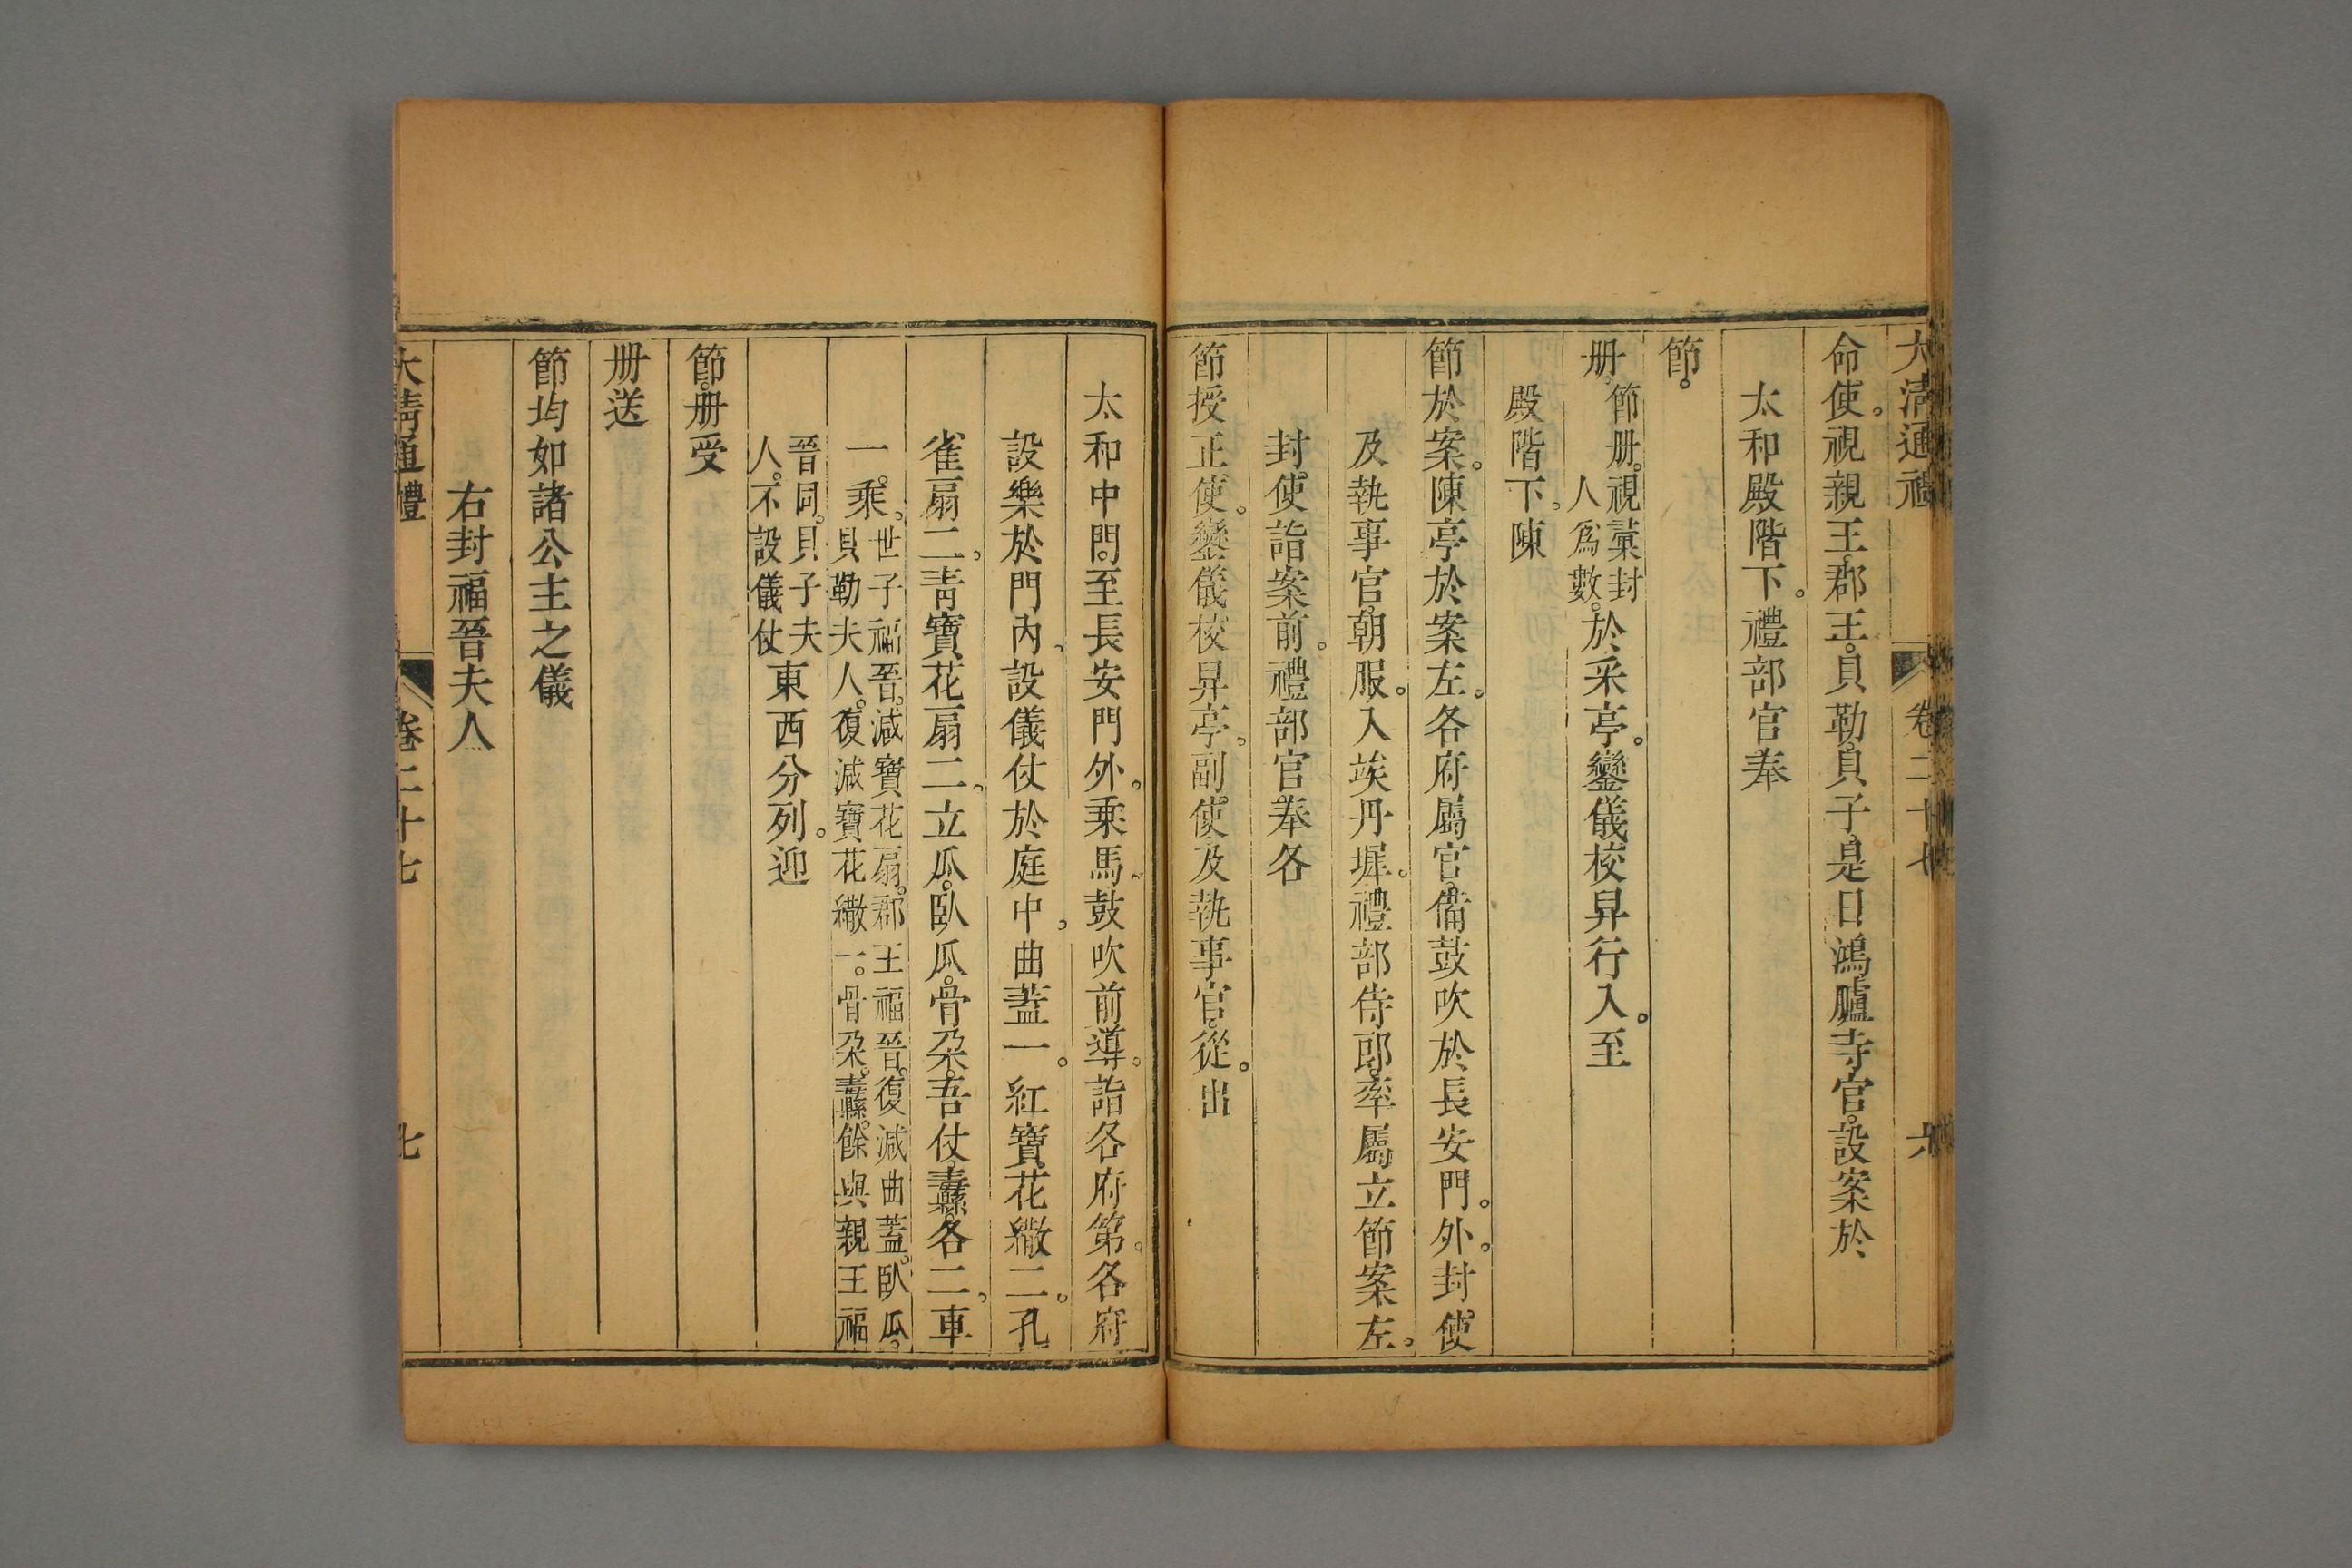 大清通禮 卷二十七 六
命使。視親王。郡王。貝勒。貝子。是日鴻臚寺官。設案於
太和殿階下。禮部官奉
節。
册。節册。視藁封人爲數。於采亭。鑾儀校舁行入。至
殿階下。陳
節於案。陳亭於案左。各府屬官。備鼓吹於長安門。外。封使
及執事官。朝服。入竢丹墀。禮部侍郎。率屬立節案左。
封。使詣案前。禮部官。奉各
節授正使。鑾儀校舁亭。副使。及執事官。從。出
太和中門。至長安門外。乗馬。鼓吹前導。詣各府第。各府
設樂於門內。設儀仗於庭中。曲蓋一。紅寶花繖二。孔
雀扇二。青寶花扇二。立瓜。臥瓜。骨朶。吾仗。纛。各二。車
一。乘。世子福晉。減寶花扇。郡王福晉。復減曲蓋。臥瓜。貝勒夫人。復減寶花繖一。骨朶。纛。餘與親王福
晉同。貝子夫人。不設儀仗東西分列。迎
節。册受
册送
節均如諸公主之儀
右封福晉夫人
大清通禮 卷二十七 七